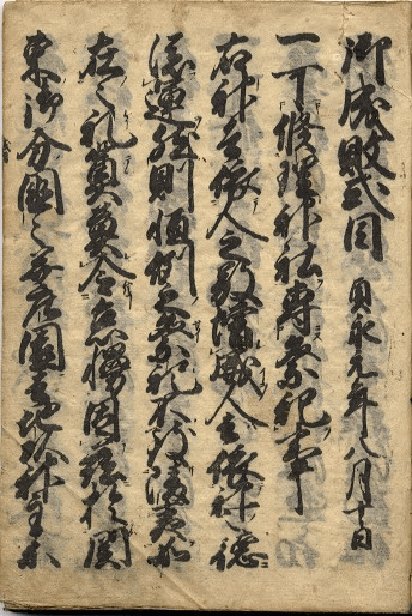 御成敗式目 貞永元年八月十日
一可修理神社専祭祀事
右神者依人之敬増威人者依神之徳
添運然則恒例之祭祀不致陵夷如
在之礼奠莫令怠慢因茲於関
東御分國々并庄園者地頭神主等